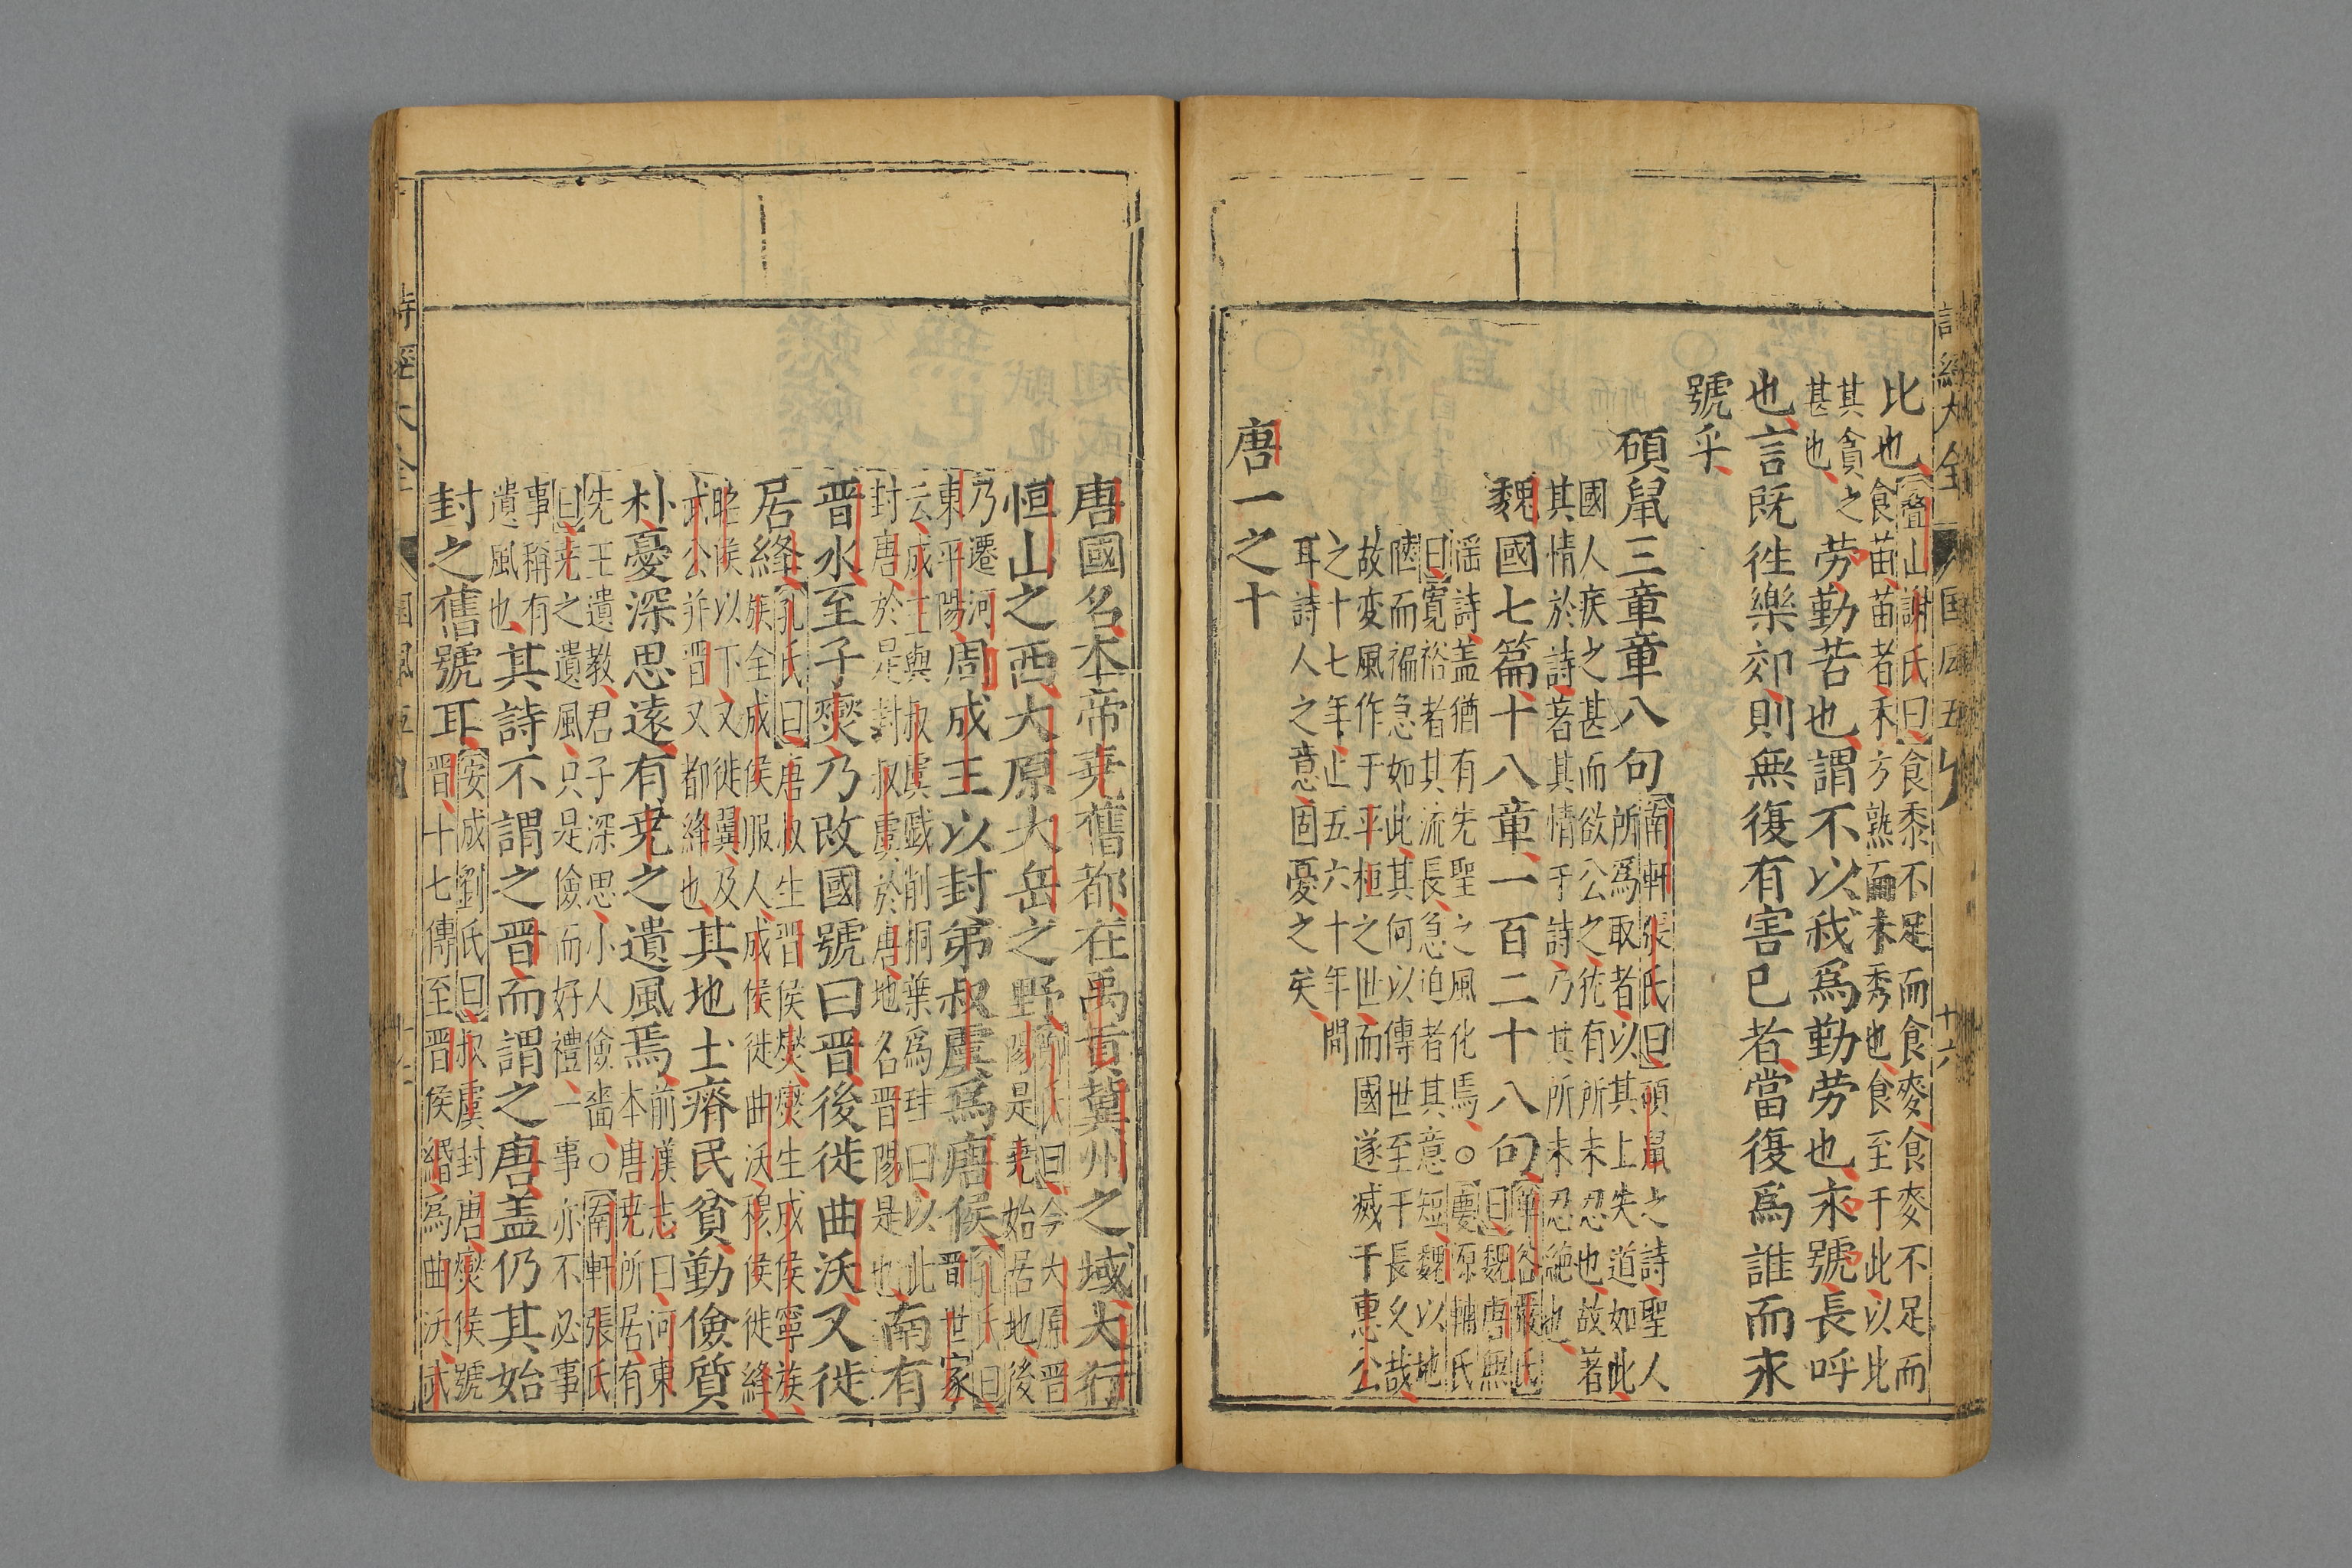 詩經大全 國風五 十六
比也疊山謝氏曰食黍不足而食麥食麥不足而
食苗苗者禾方熟而未秀也食至于此以比
其貪之
甚也勞勤苦也謂不以我爲勤勞也永號長呼
也言既徃樂郊則無復有害已者當復爲誰而永
號乎
碩鼠三章章八句南軒張氏曰碩鼠之詩聖人
所爲取者以其上失道如此
國人疾之甚而欲公之徃有所未忍也故著
其情於詩著其情于詩乃其所未忍絶也
魏國七篇十八章一百二十八句華谷嚴氏
曰魏唐無
滛詩盖猶有先聖之風化焉○慶源輔氏
曰寛裕者其流長急迫者其意短魏以地
陋而褊急如此其何以傳世至于長久哉
故変風作于平桓之世而國遂滅于惠公
之十七年止五六十年間
耳詩人之意固憂之矣
唐一之十
唐國名本帝堯舊都在禹貢冀州之域大行
恒山之西大原大岳之野鄭氏曰今大原晋
陽是堯始居地後
乃遷河
東平陽周成王以封弟叔虞爲唐侯孔氏曰
晋世家
云成王與叔虞戲削桐葉爲珪曰以此
封唐於是封叔虞於唐地名晋陽是也南有
晋水至子燮乃改國號曰晋後徙曲沃又徙
居絳孔氏曰唐叔生晋侯燮燮生成侯寧族
族全成侯服人成侯徙曲沃穆侯徙絳
昭侯以下又徙翼及
武公并晋又都絳也其地土瘠民貧勤儉質
朴憂深思遠有堯之遺風焉前漢志曰河東
本唐堯所居有
先王遺教君子深思小人儉嗇○南軒張氏
曰堯之遺風只是儉而好禮一事亦不必事
事稱有
遺風也其詩不謂之晋而謂之唐盖仍其始
封之舊號耳安成劉氏曰叔虞封唐燮侯號
晋十七傳至晋侯緡爲曲沃武